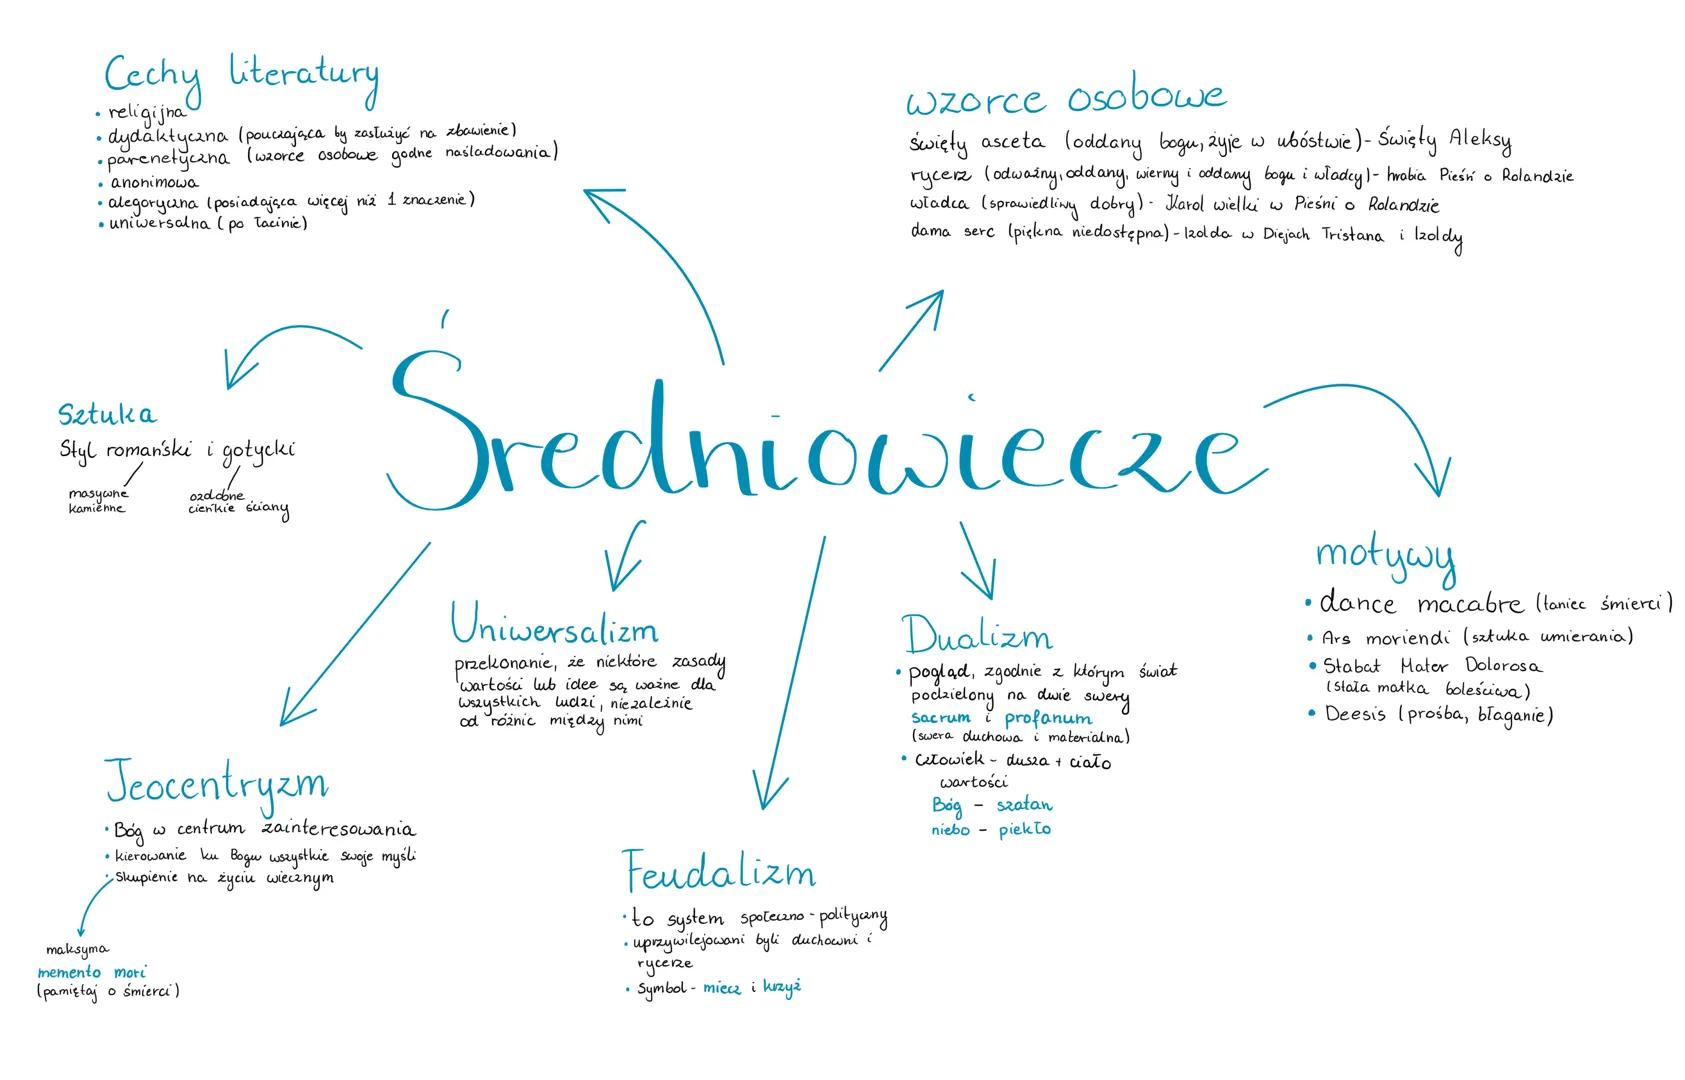 Cechy literatury
• religijna
• dydaktyczna (pouczająca by zasłużyć na zbawienie)
• parenetyczna (wzorce osobowe godne naśladowania)
• anonimowa
• alegoryczna (posiadająca więcej niż 1 znaczenie)
• uniwersalna (po łacinie)
wzorce osobowe
święty asceta (oddany bogu, żyje w ubóstwie) - Święty Aleksy
rycerz (odważny, oddany, wierny i oddany bogu i władcy) - hrabia Pieśń o Rolandzie
władca (sprawiedliwy dobry) - Karol wielki w Pieśni o Rolandzie
dama serc (piękna niedostępna) - Izolda w Diejach Tristana i Izoldy
Średniowiecze
Sztuka
Styl romański i gotycki
masywne
kamienne
ozdobne
cieńkie ściany
motywy
• dance macabre (taniec śmierci)
• Ars moriendi (sztuka umierania)
• Stabat Mater Dolorosa
(stała matka boleściwa)
• Deesis (prośba, błaganie)
Uniwersalizm
przekonanie, że niektóre zasady
wartości lub idee są ważne dla
wszystkich ludzi, niezależnie
od różnic między nimi
Dualizm
• pogląd, zgodnie z którym świat
podzielony na dwie swery
sacrum i profanum
(swera duchowa i materialna)
• Człowiek - dusza + ciało
wartości
Bóg - szatan
niebo - piekło
Jeocentryzm
• Bóg w centrum zainteresowania
• kierowanie ku Bogu wszystkie swoje myśli
• Skupienie na życiu wiecznym
maksyma
memento mori
(pamiętaj o śmierci)
Feudalizm
• to system społeczno - polityczny
• uprzywilejowani byli duchowni i
rycerze
• Symbol - miecz i krzyż